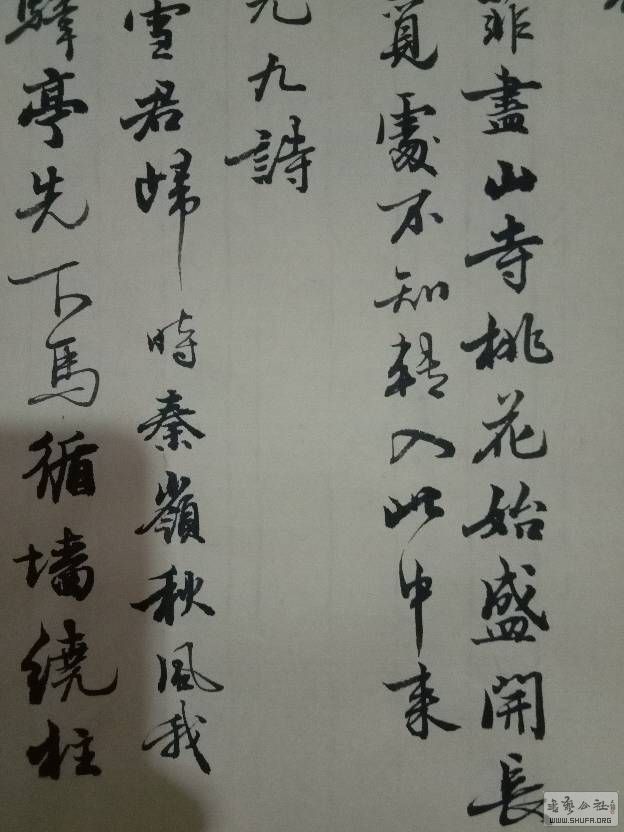 菲盡山寺桃花始盛開長
覓處不知轉入此中来
元九詩
雪君歸時秦嶺秋風我
驛亭先下馬循墙繞柱
WWW.SHUFA.ORG